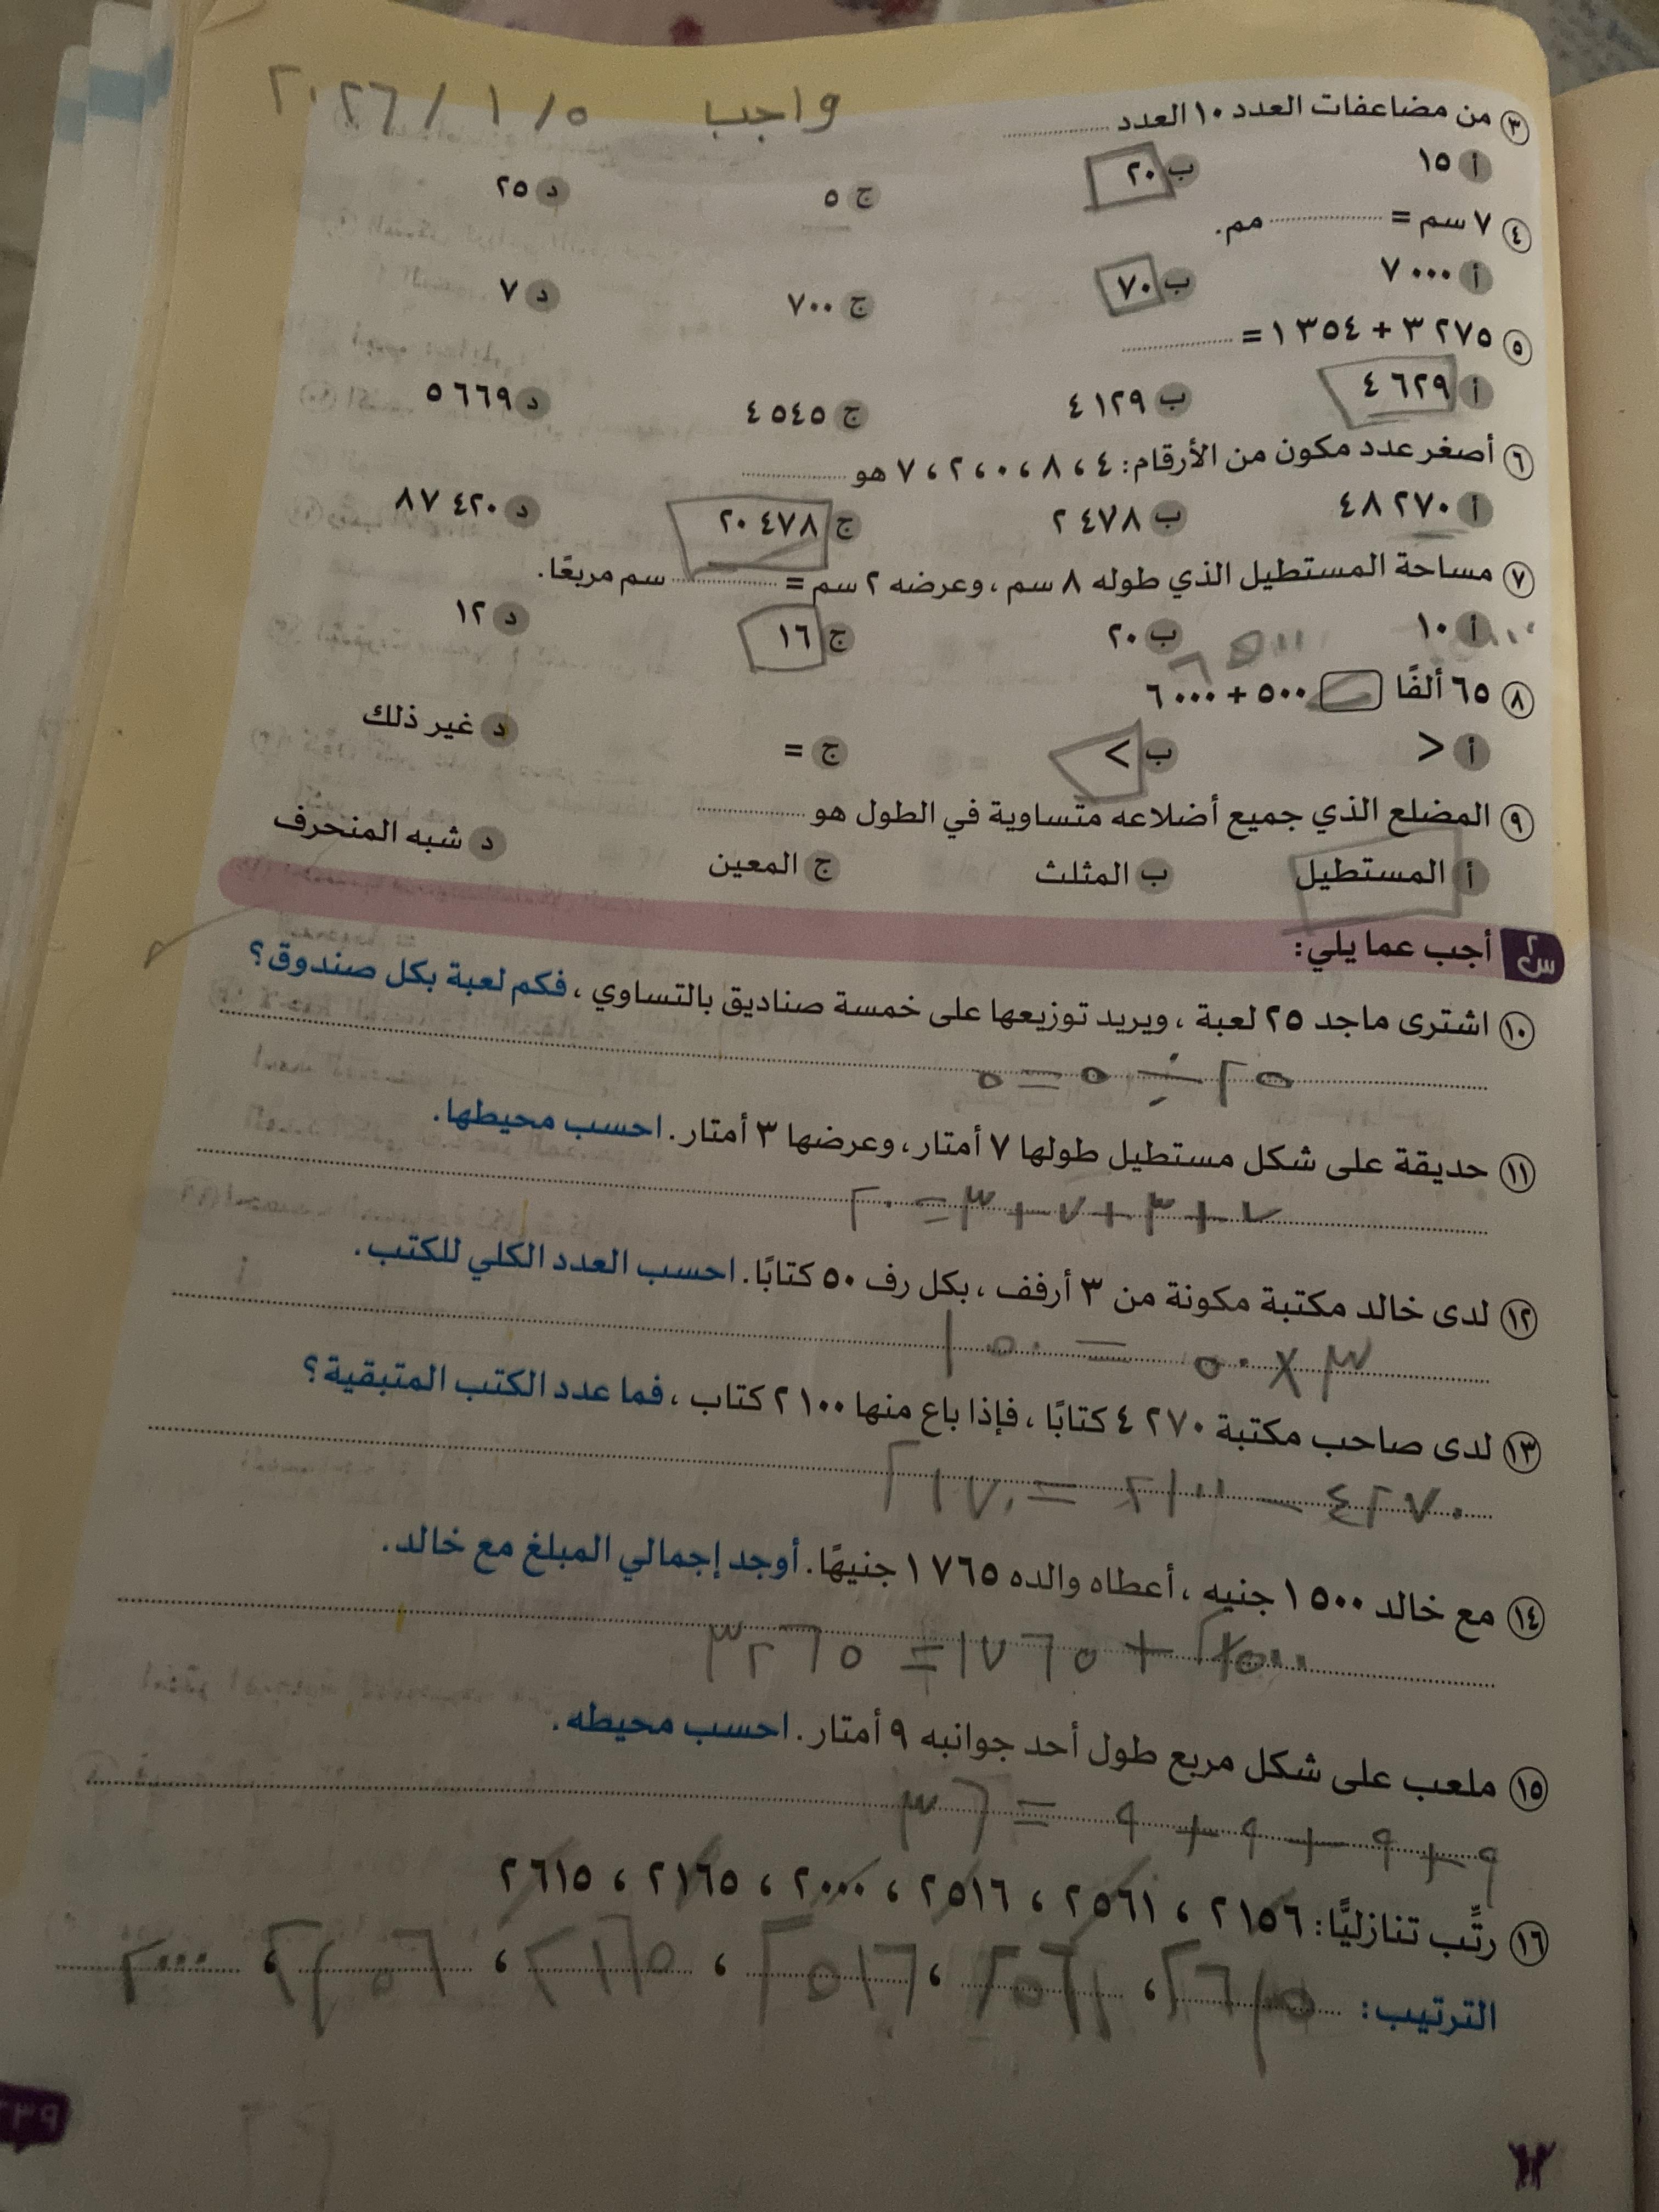 واجب ٢٠٢٦/١/٥
٣ من مضاعفات العدد ١٠ العدد ........
أ ١٥ ب ٢٠ ج ٥ د ٢٥
٤ ٧ سم = ........ مم.
أ ٧٠٠٠ ب ٧٠ ج ٧٠٠ د ٧
٥ ٣٢٧٥ + ١٣٥٤ = ........
أ ٤٦٢٩ ب ٤١٢٩ ج ٤٥٤٥ د ٥٦٦٩
٦ أصغر عدد مكون من الأرقام: ٤ ، ٨ ، ٠ ، ٢ ، ٧ هو ........
أ ٤٨٢٧٠ ب ٢٤٧٨ ج ٢٠٤٧٨ د ٨٧٤٢٠
٧ مساحة المستطيل الذي طوله ٨ سم ، وعرضه ٢ سم = ........ سم مربعًا.
أ ١٠ ب ٢٠ ج ١٦ د ١٢
٨ ٦٥ ألفًا ٥٠٠ + ٦٠٠٠
أ < ب > ج = د غير ذلك
٩ المضلع الذي جميع أضلاعه متساوية في الطول هو ........
أ المستطيل ب المثلث ج المعين د شبه المنحرف
س٢ أجب عما يلي:
١٠ اشترى ماجد ٢٥ لعبة ، ويريد توزيعها على خمسة صناديق بالتساوي ، فكم لعبة بكل صندوق؟
٢٥ ÷ ٥ = ٥
١١ حديقة على شكل مستطيل طولها ٧ أمتار ، وعرضها ٣ أمتار. احسب محيطها.
٧ + ٣ + ٧ + ٣ = ٢٠
١٢ لدى خالد مكتبة مكونة من ٣ أرفف ، بكل رف ٥٠ كتابًا. احسب العدد الكلي للكتب.
٣ × ٥٠ = ١٥٠
١٣ لدى صاحب مكتبة ٤٢٧٠ كتابًا ، فإذا باع منها ٢١٠٠ كتاب ، فما عدد الكتب المتبقية؟
٤٢٧٠ - ٢١٠٠ = ٢١٧٠
١٤ مع خالد ١٥٠٠ جنيه ، أعطاه والده ١٧٦٥ جنيهًا. أوجد إجمالي المبلغ مع خالد.
١٥٠٠ + ١٧٦٥ = ٣٢٦٥
١٥ ملعب على شكل مربع طول أحد جوانبه ٩ أمتار. احسب محيطه.
٩ + ٩ + ٩ + ٩ = ٣٦
١٦ رتِّب تنازليًّا: ٢١٥٦ ، ٢٥٦١ ، ٢٥١٦ ، ٢٠٠٠ ، ٢١٦٥ ، ٢٦١٥
الترتيب: ٢٦١٥ ، ٢٥٦١ ، ٢٥١٦ ، ٢١٦٥ ، ٢١٥٦ ، ٢٠٠٠